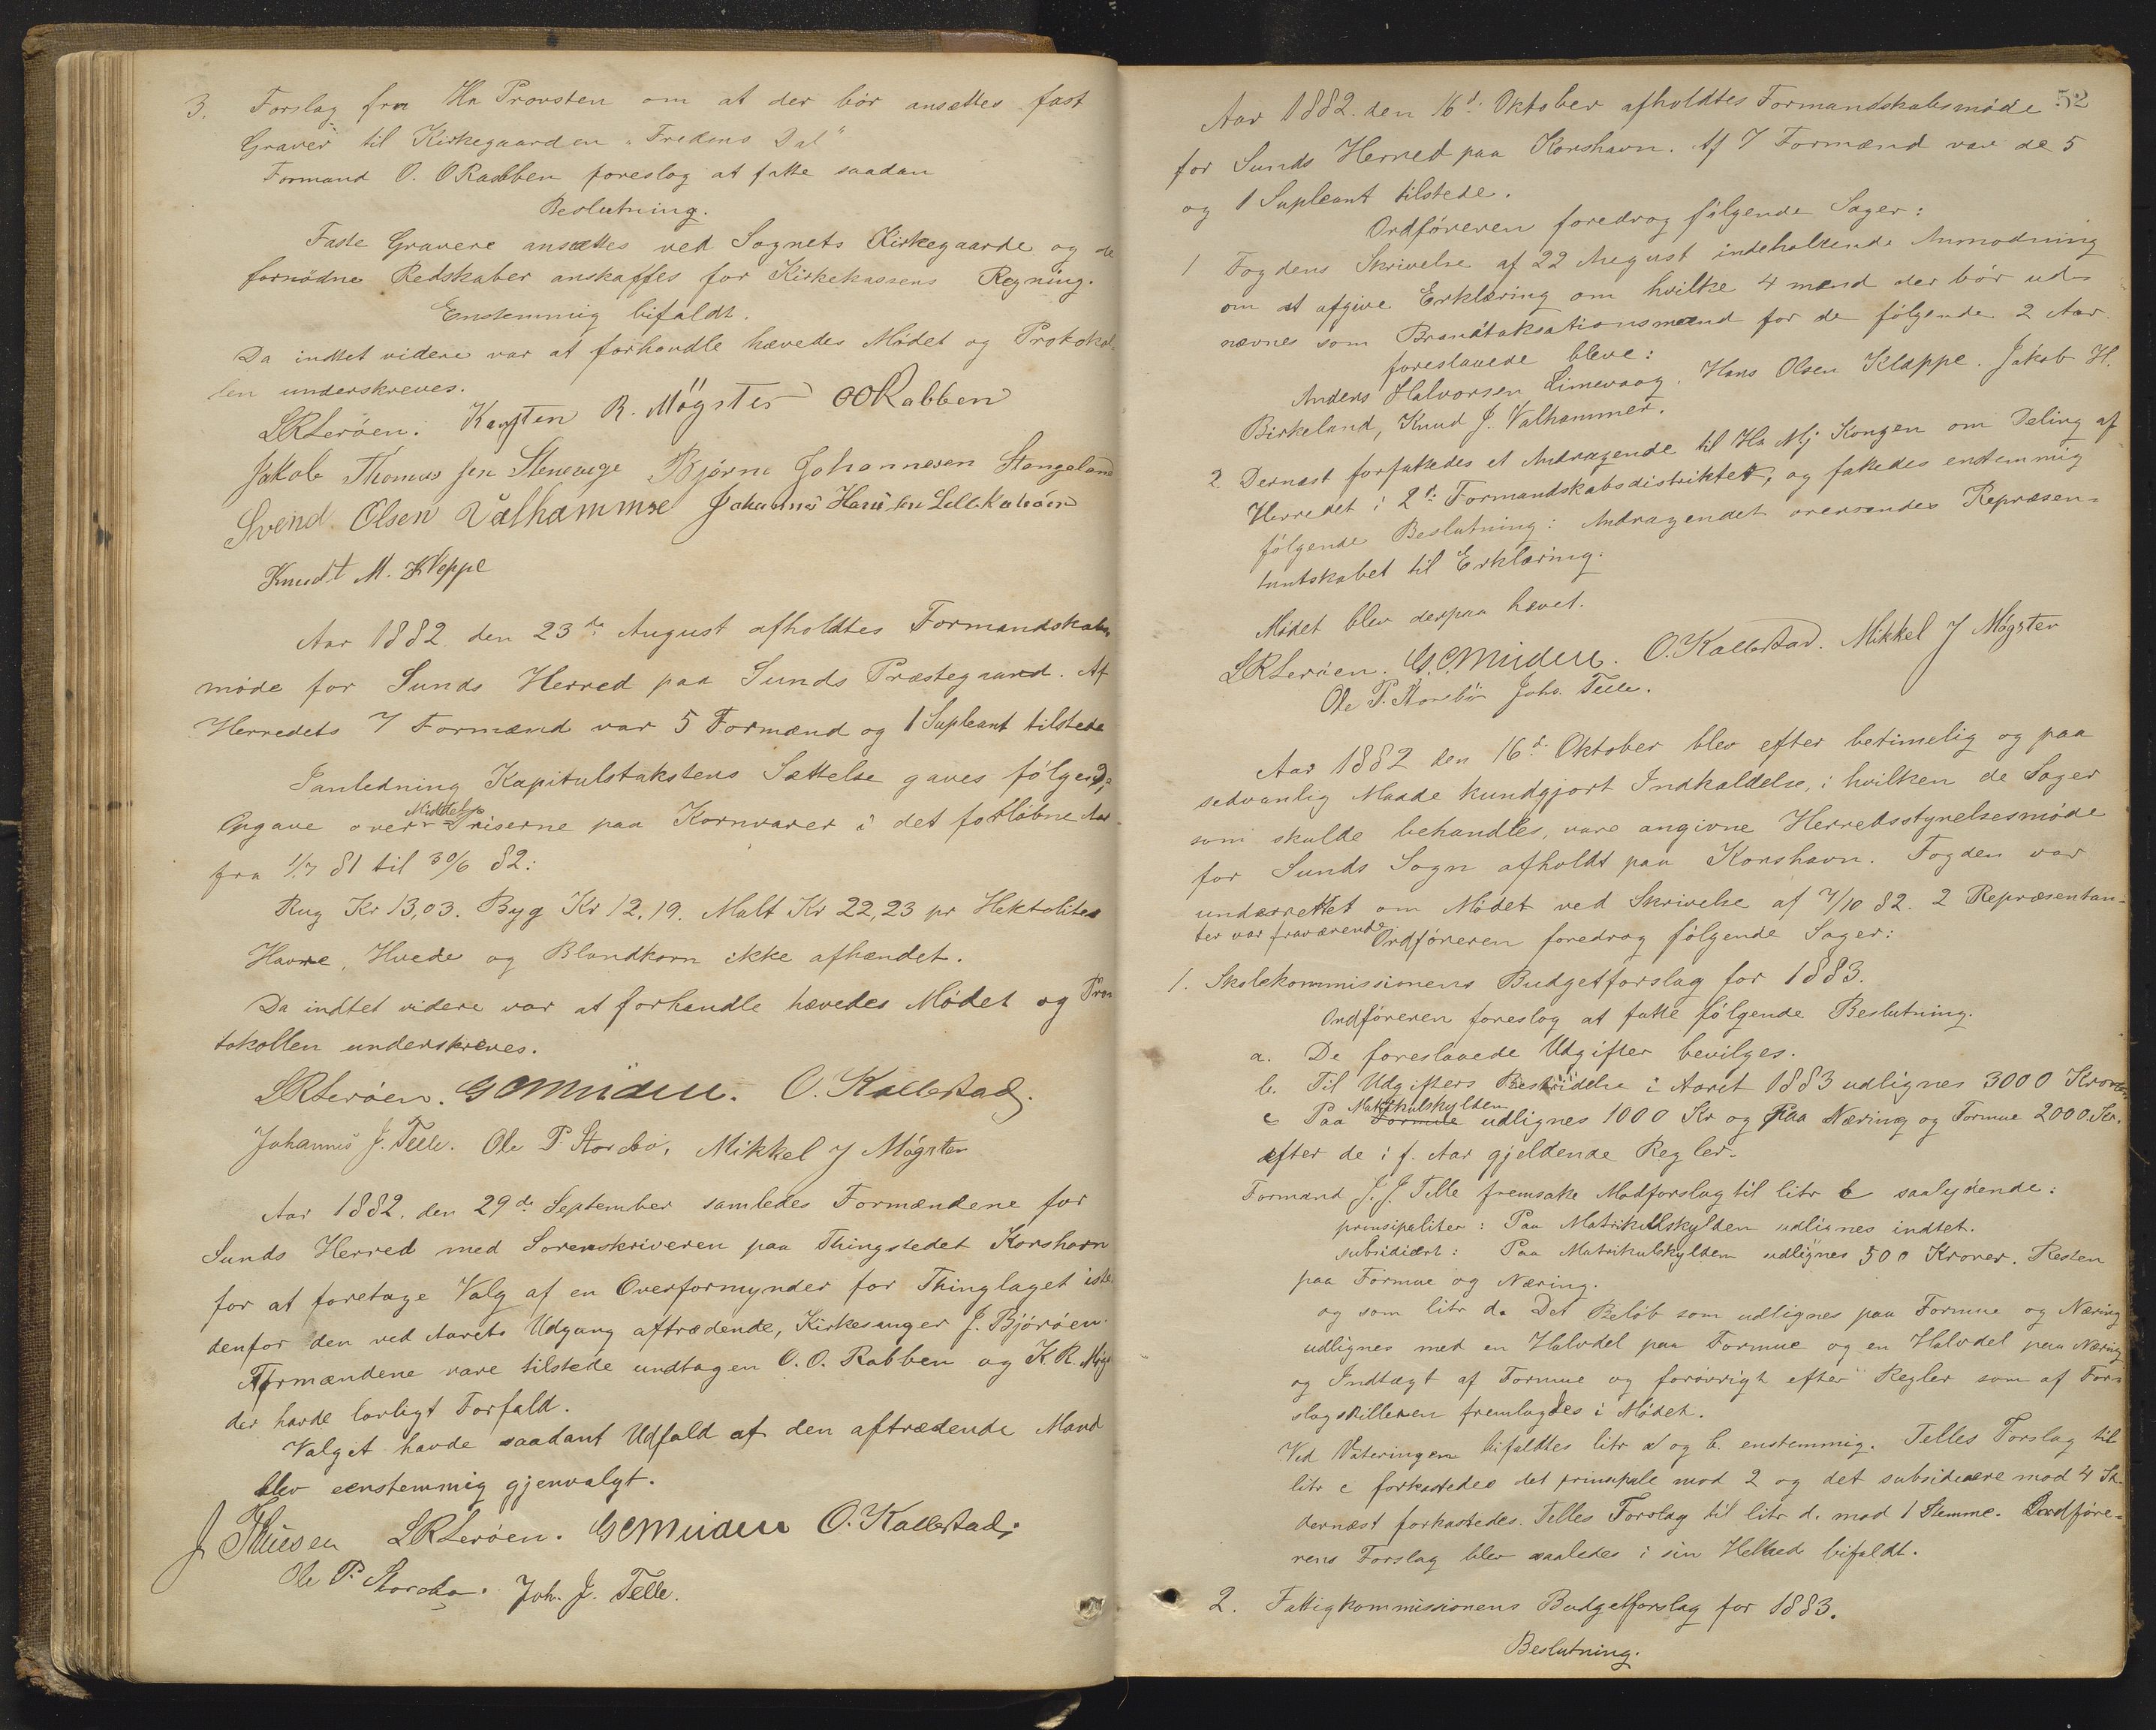 3. Forslag fra Hr Provsten om at der bör ansættes fast
Graver til Kirkegaarden "Fredens Dal"
Formand O. O Rabben foreslog at fatte saadan
Beslutning.
Faste Gravere ansættes ved Sognets Kirkegaarde og de
fornödne Redskaber anskaffes for Kirkekassens Regning.
Enstemmig bifaldt.
Da indtet videre var at forhandle hævedes Mödet og Protokol-
len underskreves.
LRLeröen. Karsten R. Mögster OORabben
Jakob Thomas sen Stenevage Björne Johannesen Stangeland
Svend Olsen Valhammer Johannes Hans sen
Knudt M. Kleppe
Aar 1882 den 23de August afholdtes Formandskabs
möde for Sunds Herred paa Sunds Præstegaard. Af
Herredets 7 Formænd var 5 Formænd og 1 Supleant tilstede
Ianledning Kapitulstakstens Sættelse gaves fölgende
Opgave over Middelpriserne paa Kornvarer i det forlöbne Aar
fra 1/7 81 til 30/6 82:
Rug Kr 13,03. Byg Kr 12,19. Malt Kr 22,23 pr Hektoliter
Havre, Hvede og Blandkorn ikke afhændet.
Da indtet videre var at forhandle hævedes Mödet og Pro
tokollen underskreves.
LRLeröen. O. Kallestad.
Johannes J. Telle. Ole P. Storebö, Mikkel J Mögster
Aar 1882. den 29de September samledes Formændene for
Sunds Herred med Sorenskriveren paa Thingstedet Korshavn
for at foretage Valg af en Overformynder for Thinglaget iste
denfor den ved Aarets Udgang aftrædende, Kirkesanger J. Björöen.
Formændene vare tilstede undtagen O. O. Rabben og K. R. Mög
der havde lovligt Forfald.
Valget havde saadant Udfald at den aftrædende Mand
blev eenstemmig gjenvalgt.
J Thiesen LRLeröen. O. Kallestad.
Ole P. Storebö. Joh. J. Telle.
52
Aar 1882. den 16d. Oktober afholdtes Formandskabsmöde
for Sunds Herred paa Korshavn. Af 7 Formænd var de 5
og 1 Supleant tilstede.
Ordföreren foredrog fölgende Sager:
1 Fogdens Skrivelse af 22 August indeholdende Anmodning
om at afgive Erklæring om hvilke 4 mænd der bör ud-
nævnes som Brandtaksationsmænd for de fölgende 2 Aar.
foreslaaede bleve:
Anders Halvorsen Limevaag. Hans Olsen Klappe. Jakob H.
Birkeland, Knud J. Valhammer.
2. Dernæst forfattedes et Andragende til Hs Mj Kongen om Deling af
Herredet i 2de Formandskabsdistrikter, og fattedes enstemmig
fölgende Beslutning: Andragendet oversendes Repræsen-
tantskabet til Erklæring.
Mödet blev derpaa hævet.
LRLeröen. O. Kallestad. Mikkel J Mögster
Ole P. Storebö Johs. Telle.
Aar 1882 den 16d. Oktober blev efter betimelig og paa
sedvanlig Maade kundgjort Indkaldelse, i hvilken de Sager
som skulde behandles, vare angivne Herredsstyrelsesmöde
for Sunds Sogn afholdt paa Korshavn. Fogden var
underrettet om Mödet ved Skrivelse af 7/10 82. 2 Repræsentan-
ter var fraværende. Ordföreren foredrog fölgende Sager:
1. Skolekommissionens Budgetforslag for 1883.
Ordföreren foreslog at fatte fölgende Beslutning.
a. De foreslaaede Udgifter bevilges.
b. Til Udgifters Bestridelse i Aaret 1883 udlignes 3000 Kroner
c Paa Formue Matrikulskylden udlignes 1000 Kr og Paa Næring og Formue 2000 Kr.
efter de i f. Aar gjeldende Regler.
Formand J. J. Telle fremsatte Modforslag til litr c saalydende:
prinsipaliter: Paa Matrikulskylden udlignes indtet.
subsidiært: Paa Matrikulskylden udlignes 500 Kroner. Resten
paa Formue og Næring.
og som litr d. Det Belöb som udlignes paa Formue og Næring
udlignes med en Halvdel paa Formue og en Halvdel paa Næring
og Indtægt af Formue og foröwrigt efter Regler som af For-
slagstilleren fremlagdes i Mödet.
Ved Voteringen bifaldtes litr a og b. enstemmig. Telles Forslag til
litr c forkastedes det prinsipale mod 2 og det subsidiære mod 4 St.
dernæst forkastedes Telles Forslag til litr d. mod 1 Stemme. Ordföre-
rens Forslag blev saaledes i sin Helhed bifaldt.
2. Fattigkommissionens Budgetforslag for 1883.
Beslutning.